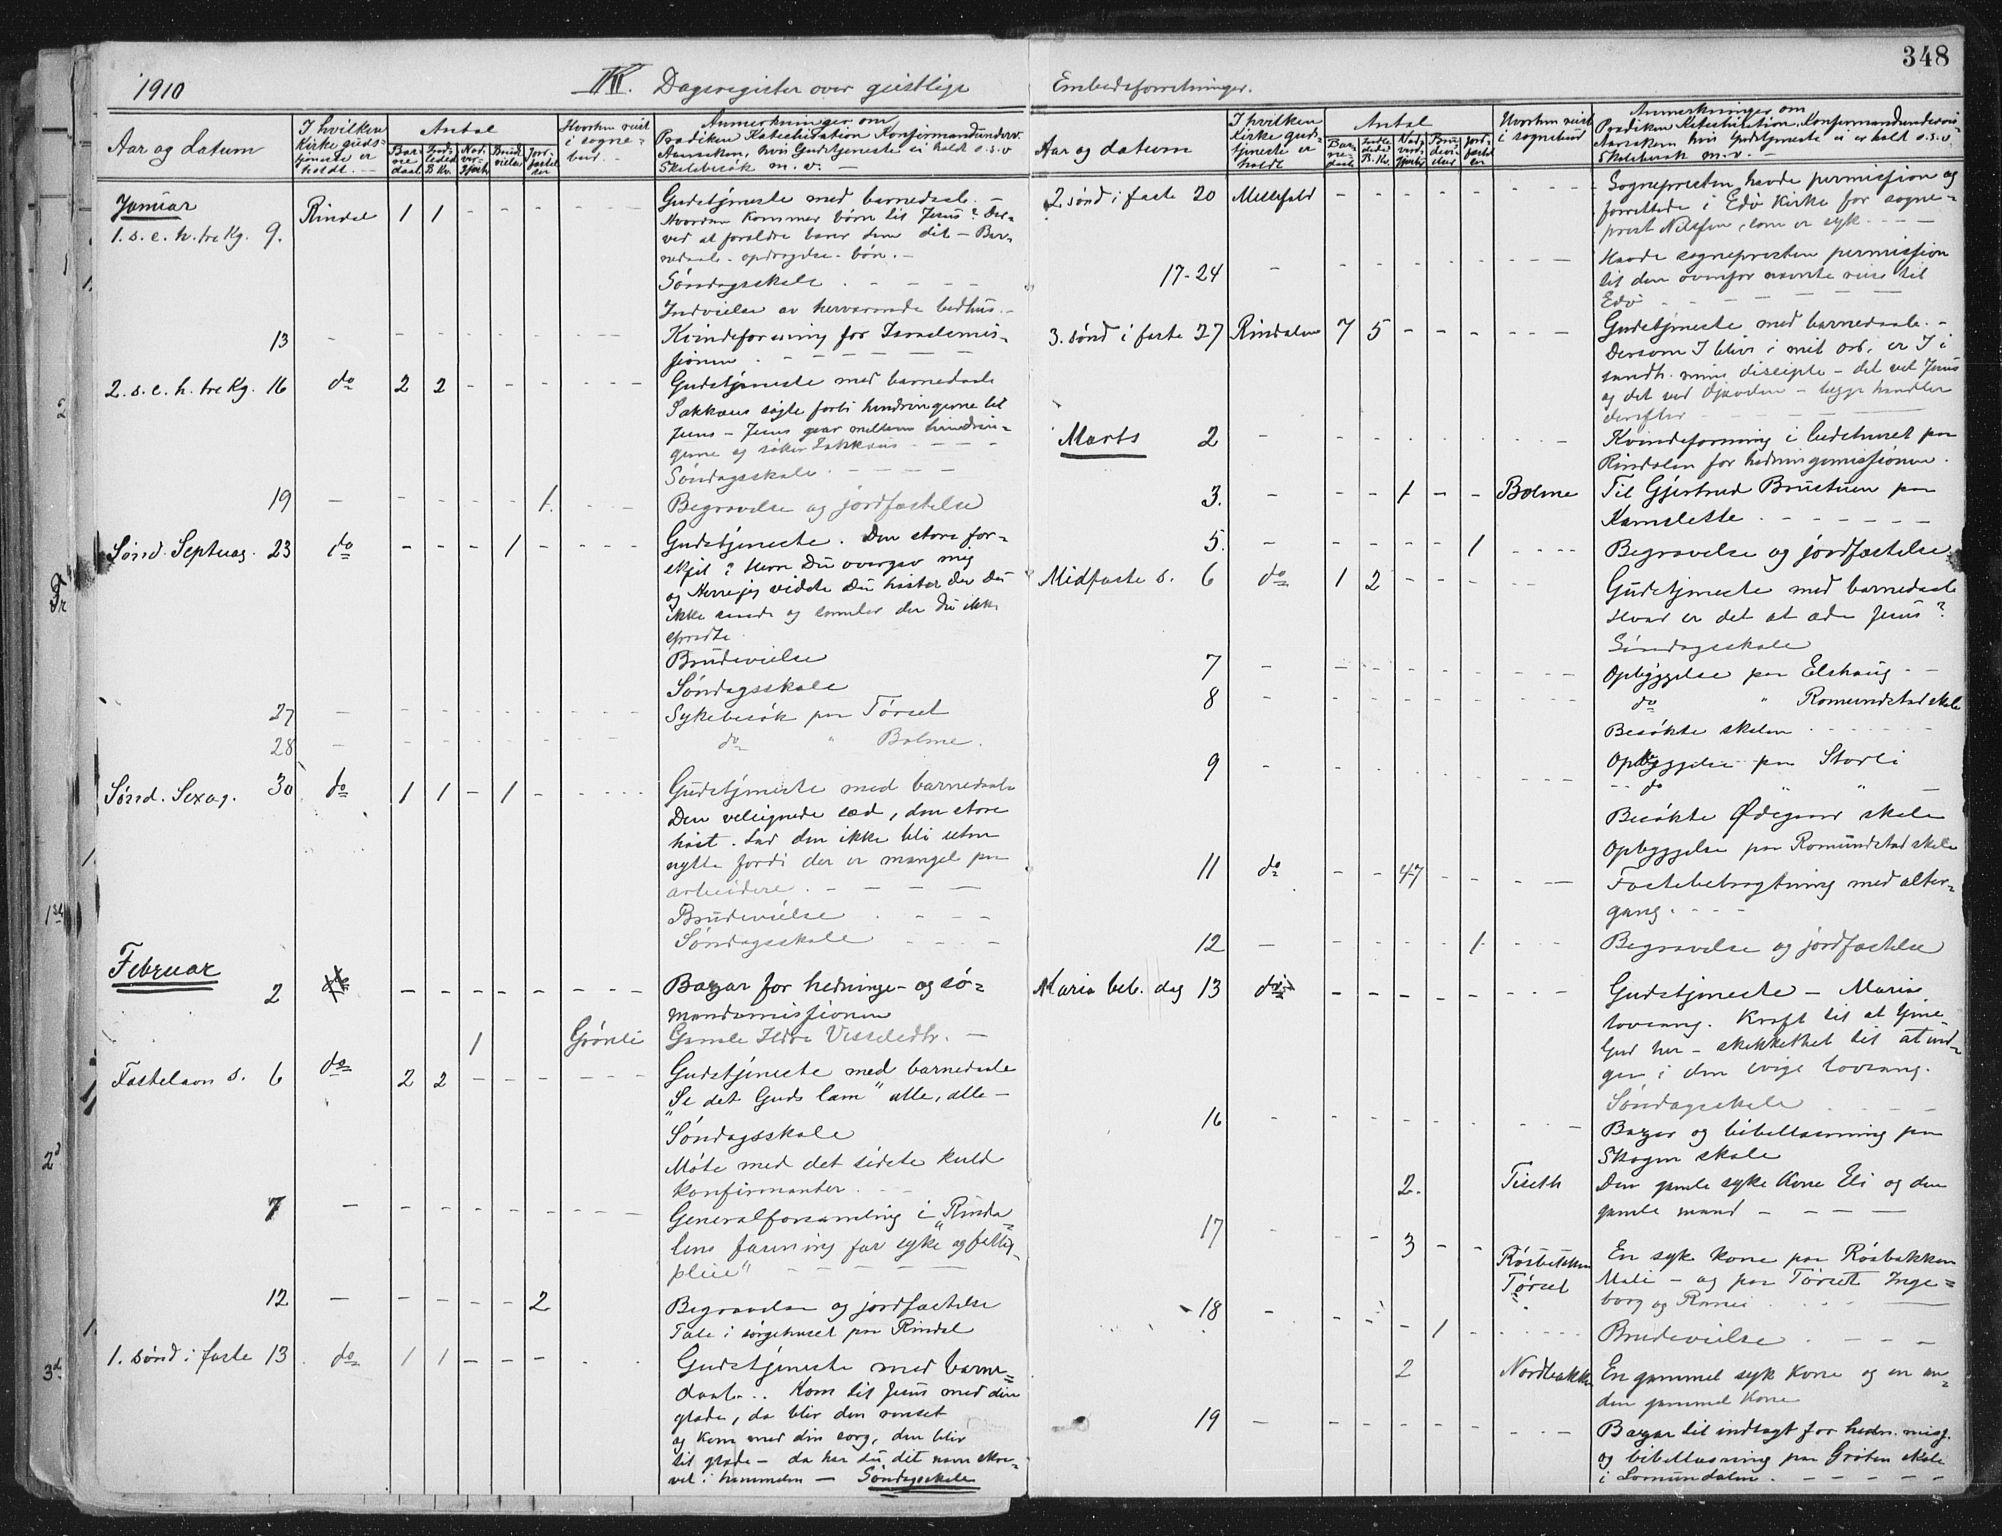 348
1910 IV. Dagsregister over geistlige Embedsforretninger.
Aar og datum
I hvilken Kirke gudstjeneste er holdt.
Antal
Barnedaab
Indledede B. Kv.
Nadvergjester
Brudevielse
Jordfæstelser
Hvorhen reist i sognebud.
Anmerkninger om Prædiken Katechisation Konfirmandunderv. Aarsaken, hvis Gudstjeneste ei holdt o.s.v Skolebesøk m. v. —
Januar
1. s. e. h. tre Kg. 9. Rindal 1 1 - - - Gudstjeneste med barnedaab. —
Hvordan kommer børn til Jesus? Der-
ved at forældre bærer dem dit — Bar-
nedaab. opdragelse. bøn. —
Søndagsskole
Indvielse av herværende bedhus. —
13 Kvindeforening for Israelsmis-
sionen
2. s. e. h. tre Kg. 16 do 2 2 - - - Gudstjeneste med barnedaab
Sakkæus søgte forbi hindringerne til
Jesus — Jesus gaar mellem hindrin-
gerne og søker Sakkæus
Søndagsskole
19 - - - - - 1. Begravelse og jordfæstelse
Sønd. Septuag. 23 do - - - 1 - Gudstjeneste. Den store for-
skjel? Herre Du overgav mig
og Herre jeg vidste Du høster der Du
ikke saade og samler der Du ikke
spredte.
Brudevielse
Søndagsskole
27 - Sykebesøk paa Tørset
28 - do " Bolme.
Sønd. Sexag. 30 do 1 1 - 1 - Gudstjeneste med barnedaab
Den velsignede sæd, den store
høst. Lad den ikke bli uten
nytte fordi der er mangel paa
arbeidere.
Brudevielse
Søndagsskole
Februar
2 - - - - - Bazar for hedninge- og sjø-
mandsmissionen
1 Grønli Gamle Ildri
Fastelavn s. 6 do 2 2 - - - Gudstjeneste med barnedaab
"Se det Guds lam" alle, alle —
Søndagsskole
Møte med det sidste kuld
konfirmanter.
7 - - - - - - Generalforsamling i "Rinda-
lens forening for syke og fattig-
pleie"
12 - - - - - 2 Begravelse og jordfæstelse
Tale i sørgehuset paa Rindal
1. sønd i faste 13 do 1 1 - - - Gudstjeneste med barne-
daab. Kom til Jesus med din
glæde, da blir den renset
og kom med din sorg, den blir
til glæde — da har du dit navn skre-
vet i himmelen — Søndagsskole
Aar og datum
I hvilken Kirke gudstjeneste er holdt
Antal
Barnedaab
Indledede B. Kv.
Nadvergjester
Brudevielser
Jordfæstelser
Hvorhen reist i sognebud
Anmerkninger om Prædiken Katechisation, Konfirmandundervis. Aarsaken hvis Gudstjeneste ei er holdt o. s. v Skolebesøk m. v. —
2 sønd i faste 20 Messefald - - - - - Sognepresten havde permission og
forrettede i Edø Kirke for sogne-
prest Nilssen, som er syk.
17-24 - Havde sognepresten permission
til den ovenfor nævnte reise til
Edø
3. sønd i faste 27 Rindalen 7 5 - - - Gudstjeneste med barnedaab. —
Dersom I blive i mit ord, er I i
sandh. mine disciple — det vet Jesus
og det ved djævelen — begge handler
derefter
Marts 2 - Kvindeforening i bedehuset paa
Rindalen for hedningemissionen.
3. - - - 1 - - Bolme Til Gjertrud Brustuen paa
Kamslette
5. - - - - - 1 Begravelse og jordfæstelse
Midfaste s. 6 do 1 2 - - - Gudstjeneste med barnedaab
Hvad er det at æde Jesus?
Søndagsskole
7 - Opbyggelse paa Elshaug
8 - do " Romundstad skole
Besøkte skolen
9 - Opbyggelse paa Storli
do " "
Besøkte Ødegaard skole
Opbyggelse paa Romundstad skole
11 do - - 47 - - Fastebetragtning med alter-
gang.
12 - - - - - 1 Begravelse og jordfæstelse
Mariæ beb. dag 13 do - - - - - Gudstjeneste — Mariæ
lovsang. Kraft til at tjene
Gud her — skikkethet til at ind-
gaa i den evige lovsang.
Søndagsskole
16 - Bazar og bibellæsning paa
Skogen skole
2. Tiseth Den gamle syke kone Eli og den
gamle mand
17 - - - 3 - - Røsbakken En syk kone paa Røsbakken
Tørset Mali — og paa Tørset Inge-
borg og Ranei
18 - - - - 1 - Brudevielse
2 Nordbakken En gammel syk kone og en an-
den gammel kone
19 - Bazar til indtægt for hedn. miss.
og bibellæsning paa Grøten skole
i Lomundalen.